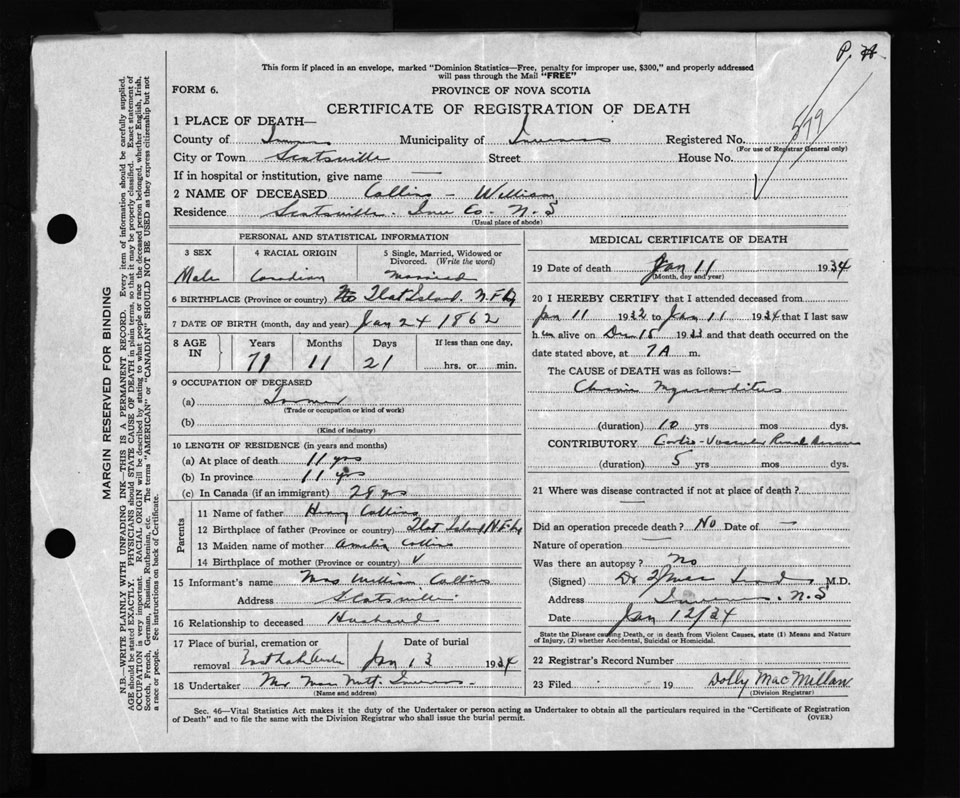 P. 
This form if placed in an envelope, marked "Dominion Statistics—Free, penalty for improper use, $300," and properly addressed
will pass through the Mail "FREE"
FORM 6. PROVINCE OF NOVA SCOTIA
CERTIFICATE OF REGISTRATION OF DEATH
599
1 PLACE OF DEATH—
County of Inverness Municipality of Inverness Registered No.
(For use of Registrar General only)
City or Town Scotsville Street House No.
If in hospital or institution, give name —
2 NAME OF DECEASED Collins - William
Residence Scotsville. Inver Co. N.S
(Usual place of abode)
PERSONAL AND STATISTICAL INFORMATION
3 SEX 4 RACIAL ORIGIN 5 Single, Married, Widowed or
Divorced. (Write the word)
Male Canadian Married
6 BIRTHPLACE (Province or country) Flat Island. N.F.
7 DATE OF BIRTH (month, day and year) Jan 24 1862
8 AGE IN Years Months Days If less than one day,
71 11 21 hrs. or min.
9 OCCUPATION OF DECEASED
(a) Farmer
(Trade or occupation or kind of work)
(b)
(Kind of industry)
10 LENGTH OF RESIDENCE (in years and months)
(a) At place of death 11 yrs
(b) In province 11 yrs
(c) In Canada (if an immigrant) 29 yrs
Parents
11 Name of father Henry Collins
12 Birthplace of father (Province or country) Flat Island N.F.
13 Maiden name of mother Amelia Collins
14 Birthplace of mother (Province or country)
15 Informant's name Mrs William Collins
Address Scotsville
16 Relationship to deceased Husband
17 Place of burial, cremation or Date of burial
removal Jan 13 1934
18 Undertaker Inverness.
(Name and address)
MEDICAL CERTIFICATE OF DEATH
19 Date of death Jan 11 1934
(Month, day and year)
20 I HEREBY CERTIFY that I attended deceased from
Jan 11 1932 to Jan 11 1934 that I last saw
him alive on Dec 15 1933 and that death occurred on the
date stated above, at 7 A m.
The CAUSE of DEATH was as follows:—
Chronic Myocarditis
(duration) 10 yrs mos dys.
CONTRIBUTORY Cardio-Vascular Renal disease
(duration) 5 yrs mos dys.
21 Where was disease contracted if not at place of death?
—
Did an operation precede death? No Date of —
Nature of operation —
Was there an autopsy? No
(Signed) Dr M.D.
Address Inverness. N.S
Date Jan 12/34
State the Disease causing Death, or in death from Violent Causes, state (1) Means and Nature
of Injury, (2) whether Accidental, Suicidal or Homicidal.
22 Registrar's Record Number
23 Filed 19 Dolly MacMillan
(Division Registrar)
Sec. 46—Vital Statistics Act makes it the duty of the Undertaker or person acting as Undertaker to obtain all the particulars required in the "Certificate of Registration
of Death" and to file the same with the Division Registrar who shall issue the burial permit. (OVER)
MARGIN RESERVED FOR BINDING
N.B.—WRITE PLAINLY WITH UNFADING INK—THIS IS A PERMANENT RECORD. Every item of information should be carefully supplied.
AGE should be stated EXACTLY. PHYSICIANS should STATE CAUSE OF DEATH in plain terms, so that it may be properly classified. Exact statement of
OCCUPATION is very important. RACIAL ORIGIN will be described by stating to what people or race the deceased person belonged, whether English, Irish,
Scotch, French, German, Russian, Ruthenian, etc. The terms "AMERICAN" or "CANADIAN" SHOULD NOT BE USED as they express citizenship but not
a race or people. See instructions on back of Certificate.